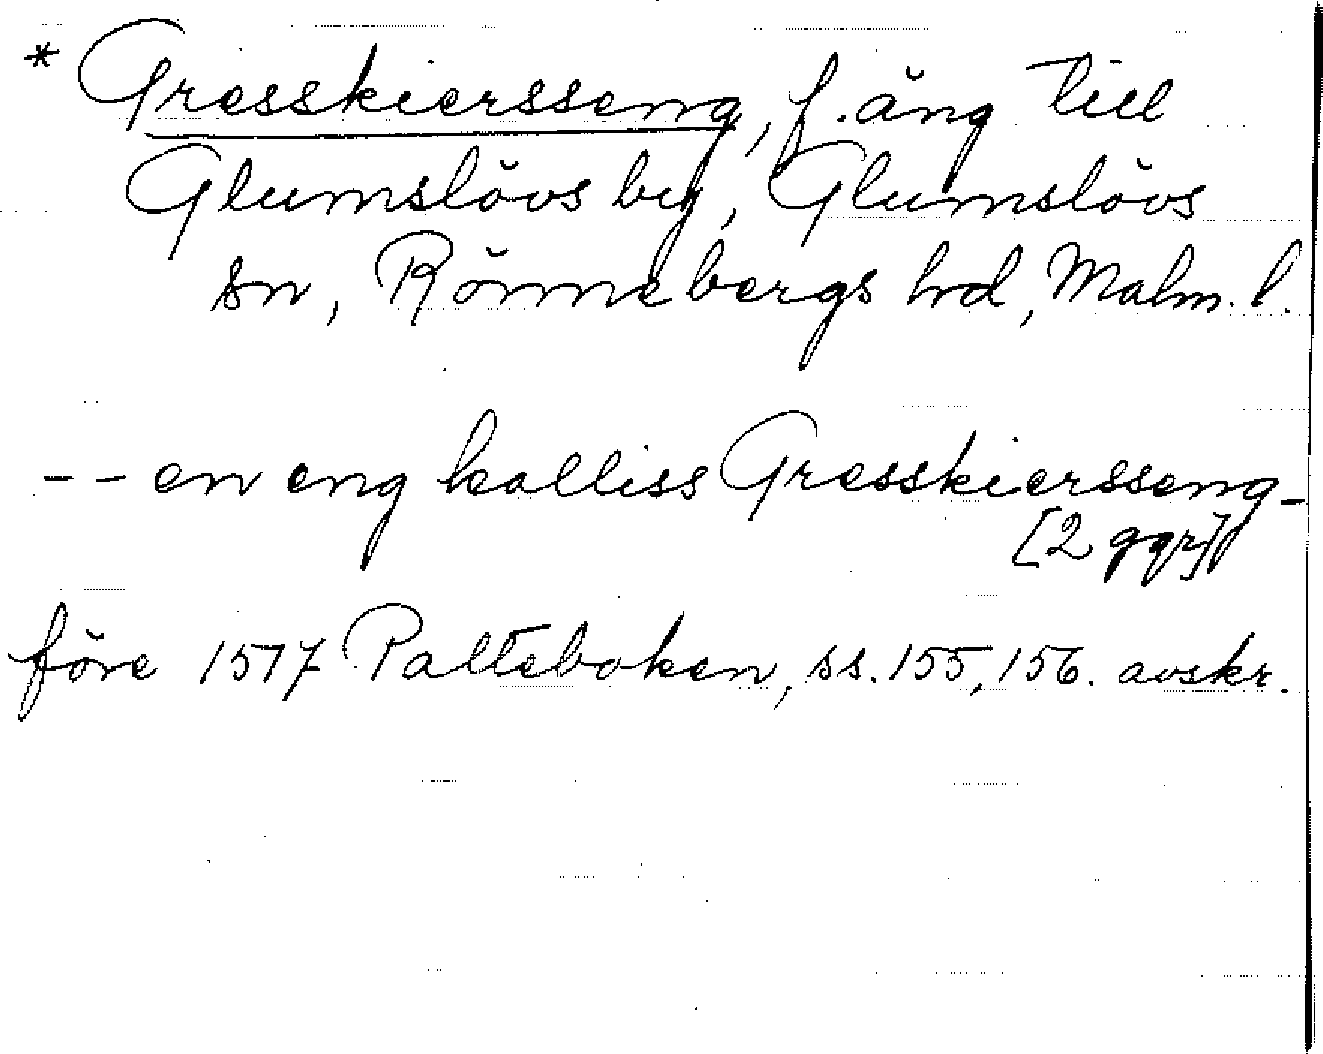 * Gresskiersseng, f. äng till
Glumslövs by, Glumslövs
sn, Rönnebergs hd, Malm. l.
-- en eng kalliss Gresskiersseng -
[2 ggr]
före 1517 Palteboken, ss. 155, 156. avskr.